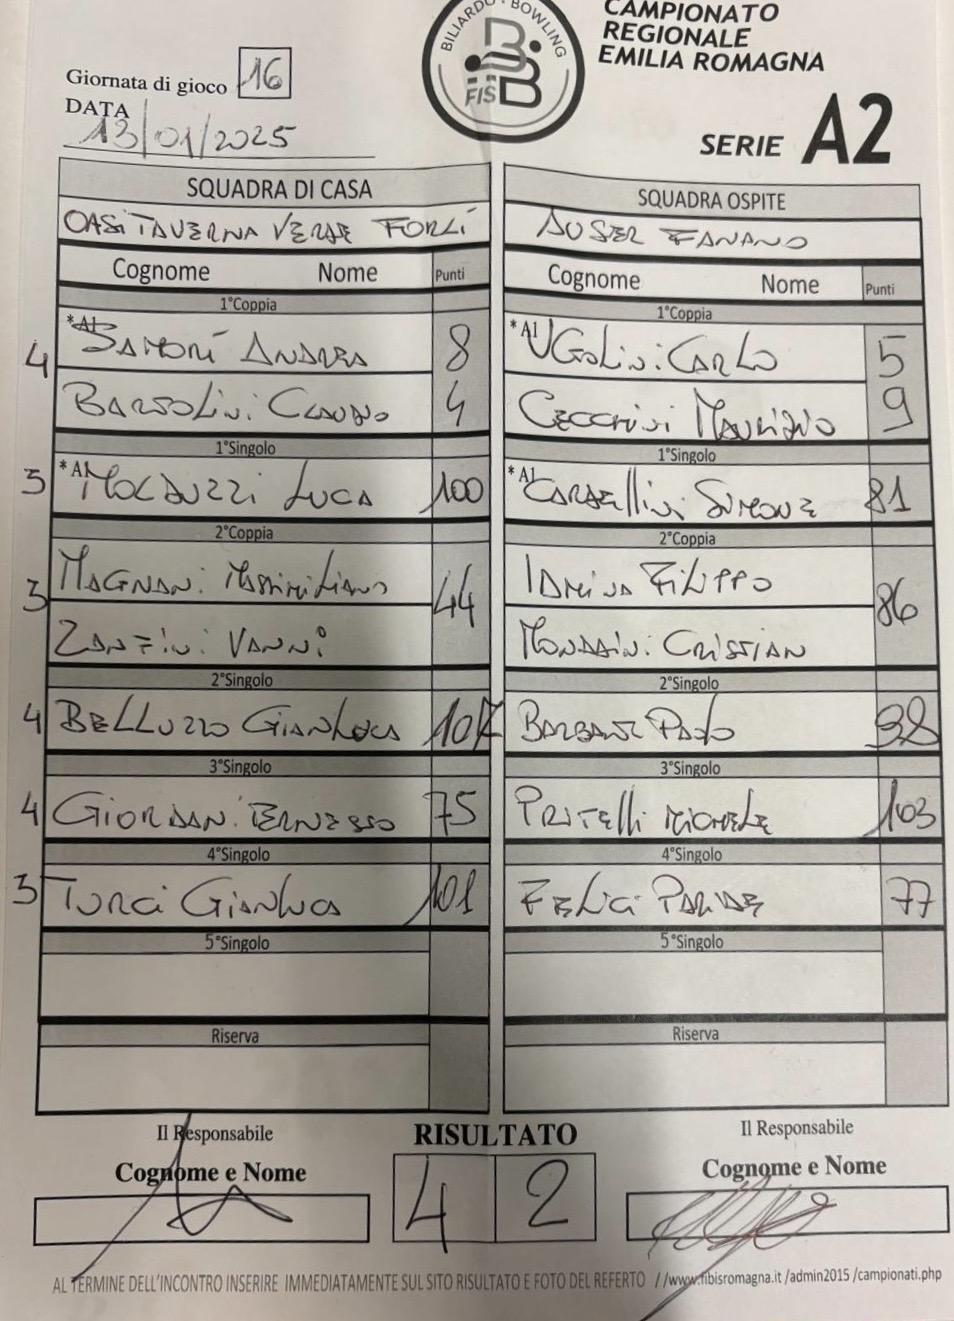 BILIARDO · BOWLING
FIS
CAMPIONATO
REGIONALE
EMILIA ROMAGNA
Giornata di gioco 16
DATA
13/01/2025
SERIE A2
SQUADRA DI CASA SQUADRA OSPITE
OASI TAVERNA VERDE FORLÍ AUSER FANANO
Cognome Nome Punti Cognome Nome Punti
1°Coppia 1°Coppia
4 *A1 SAMORÍ ANDREA 8 *A1 UGOLINI CARLO 5
BARTOLINI CLAUDIO 4 CECCHINI MAURIZIO 9
1°Singolo 1°Singolo
3 *A1 LUCA 100 *A1 SIMONE 81
2°Coppia 2°Coppia
3 MAGNANI MASSIMILIANO 44 FILIPPO 86
ZANFINI VANNI MONDAINI CRISTIAN
2°Singolo 2°Singolo
4 BELLUZZO GIANLUCA 107 PAOLO 98
3°Singolo 3°Singolo
4 GIORDANI 75 PRITELLI MICHELE 103
4°Singolo 4°Singolo
3 TURCI GIANLUCA 101 FELICI PARIDE 77
5°Singolo 5°Singolo
Riserva Riserva
Il Responsabile RISULTATO Il Responsabile
Cognome e Nome 4 2 Cognome e Nome
AL TERMINE DELL'INCONTRO INSERIRE IMMEDIATAMENTE SUL SITO RISULTATO E FOTO DEL REFERTO //www.fibisromagna.it /admin2015 /campionati.php